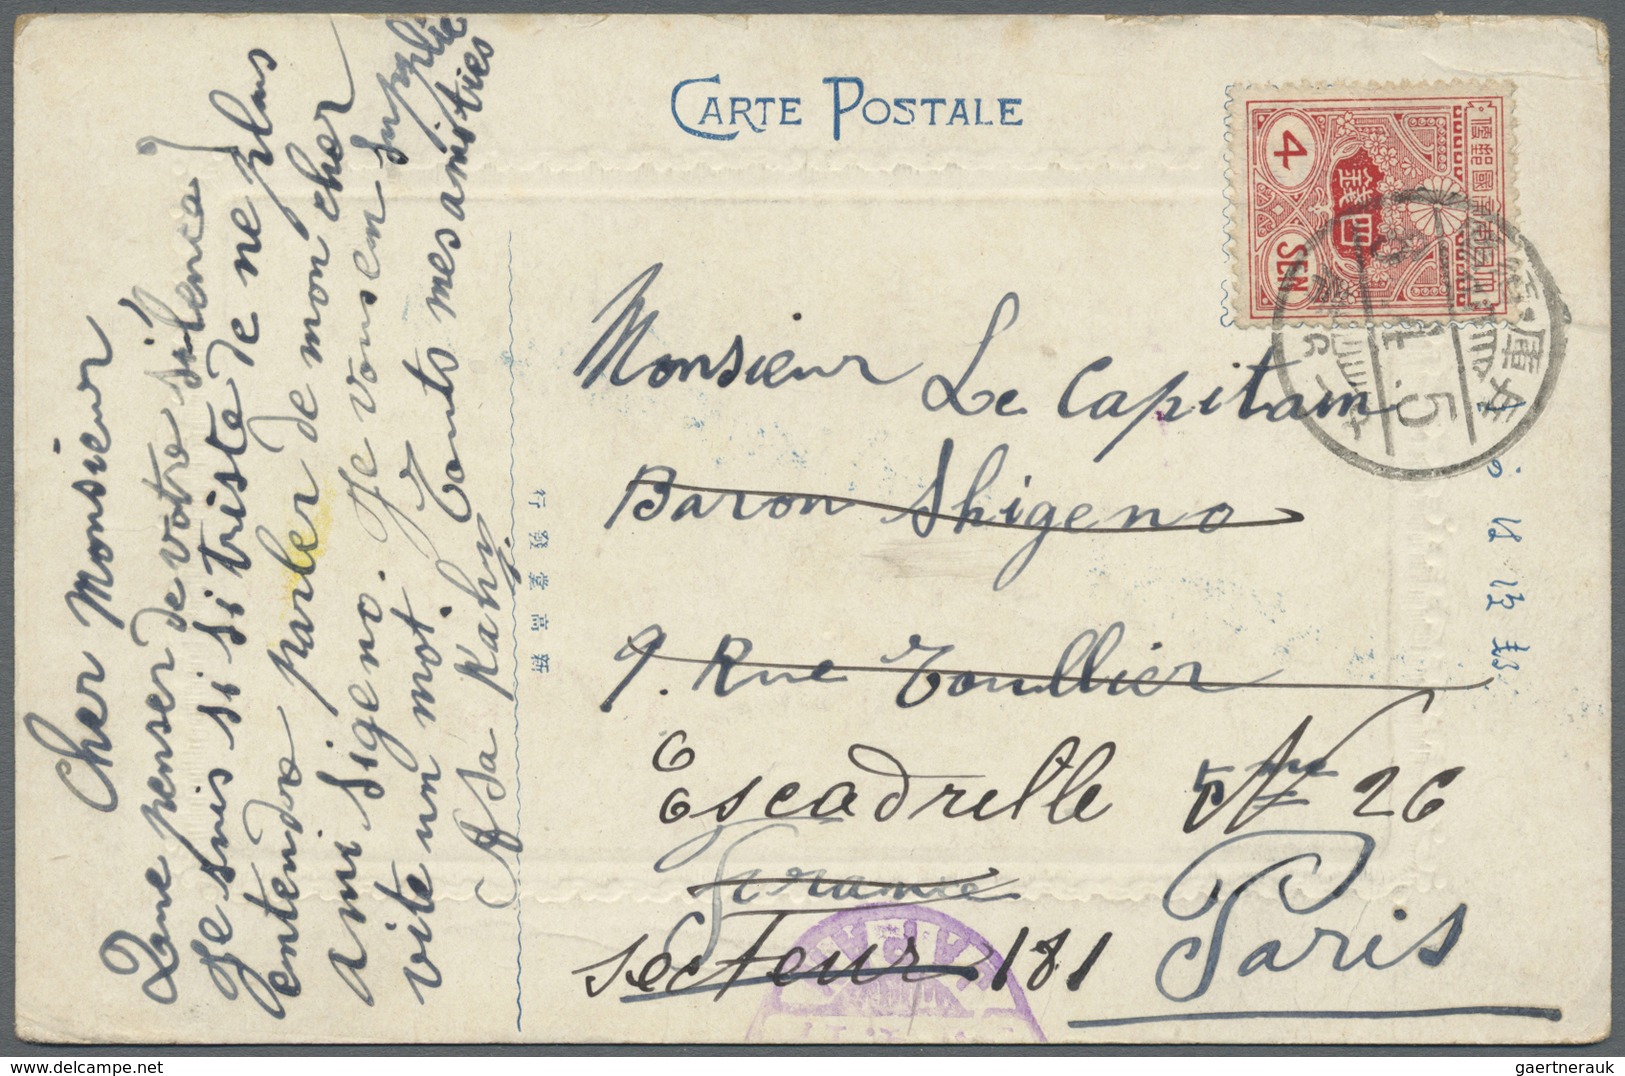 CARTE POSTALE
4
SEN
銭四
5
Cher Monsieur
Que penser de votre silence!
Je suis si si triste de ne plus
entendre parler de mon cher
ami Sigeno. Je vous en supplie
vite un mot. Touts mes amitiés
Asa Kahy
Monsieur Le Capitain
Baron Shigeno
9. Rue Toullier
Escadrelle N 26
France
5me
Secteur 181 Paris
行發堂高
gaertnerauk